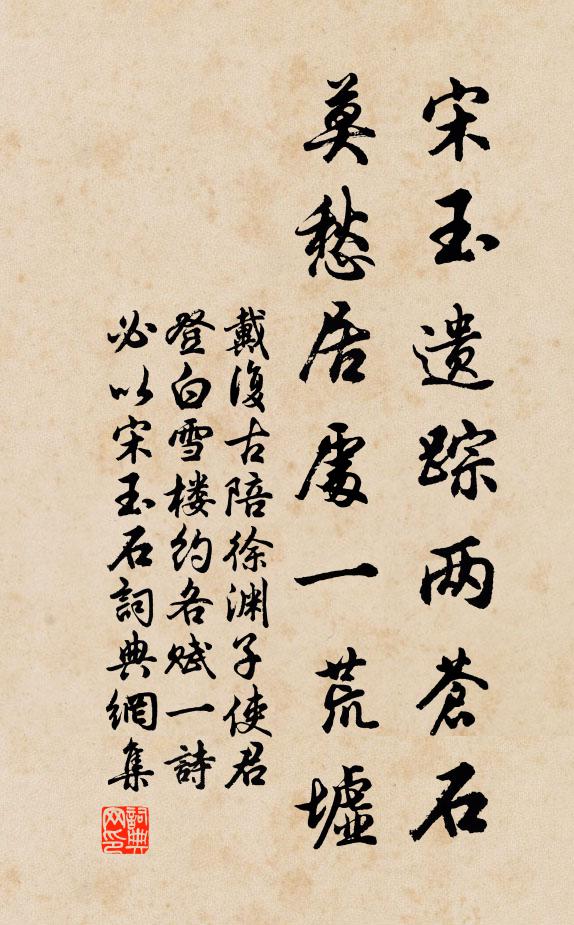 宋玉遗踪两苍石
莫愁居處一荒墟
戴復古陪徐渊子使君
登白雪楼约各赋一詩
必以宋玉石詞典網集
詞典网印